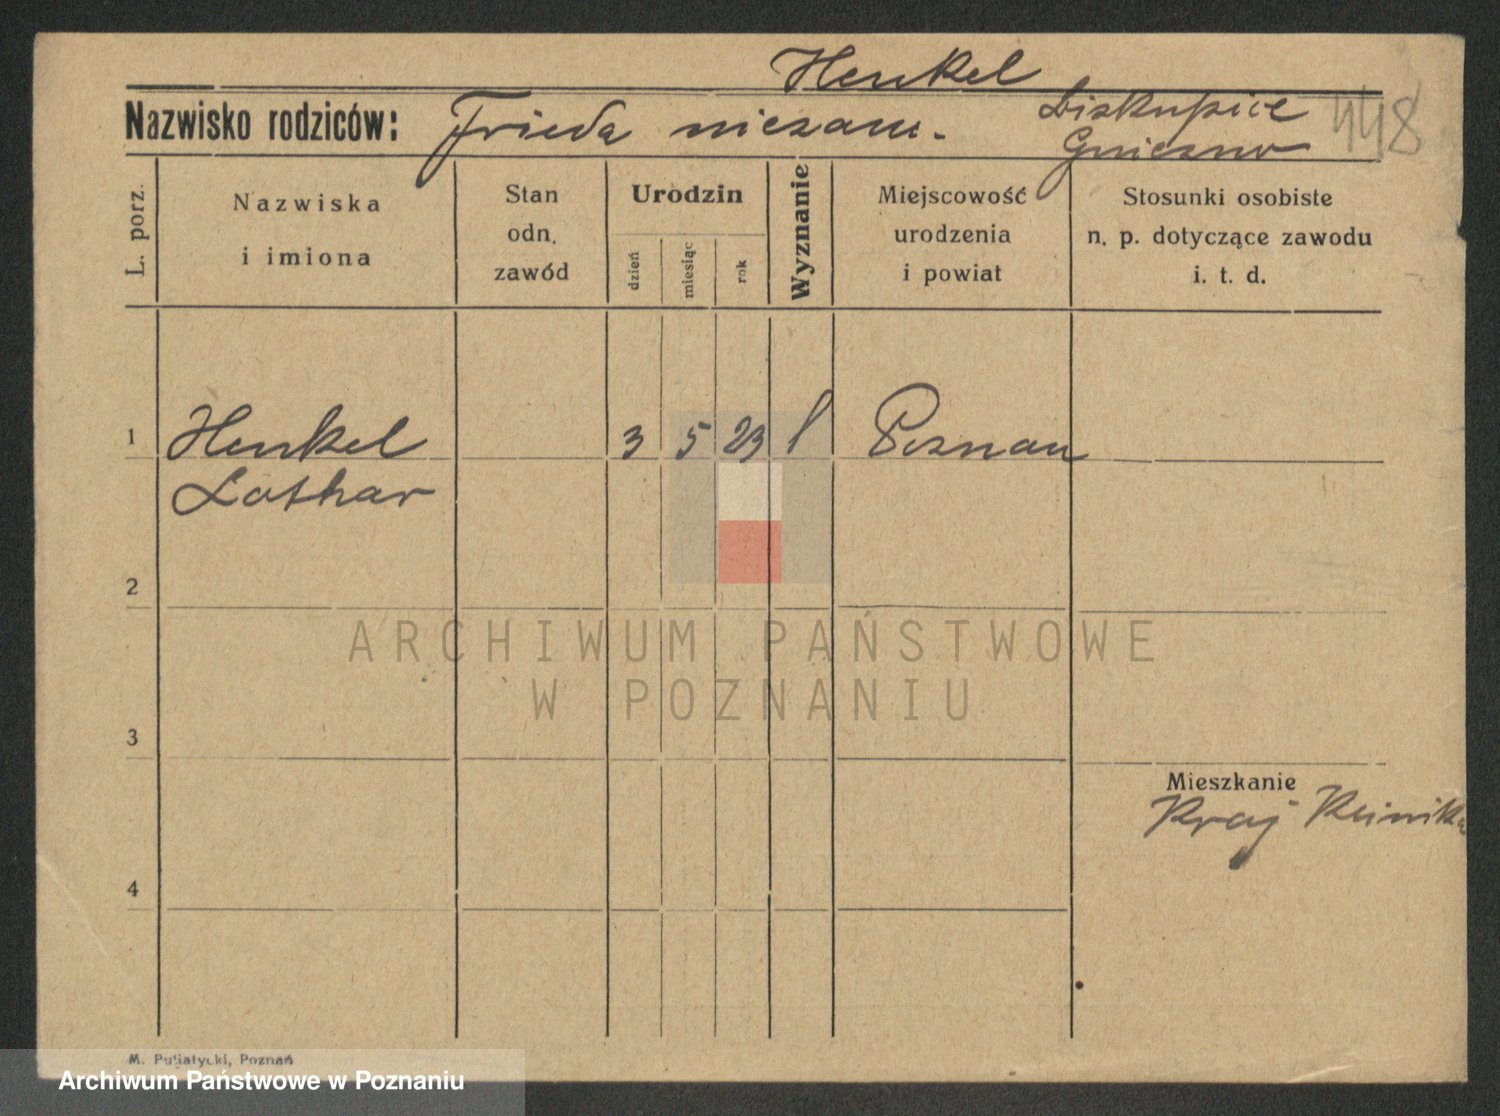 Henkel
Nazwisko rodziców: Frieda niezam. Biskupice 448
Gniezno
L. porz.
Nazwiska
i imiona
Stan
odn.
zawód
Urodzin
dzień
miesiąc
rok
Wyznanie
Miejscowość
urodzenia
i powiat
Stosunki osobiste
n. p. dotyczące zawodu
i. t. d.
1 Henkel 3 5 23 l Poznan
Lothar
2
ARCHIWUM PAŃSTWOWE
W POZNANIU
3
Mieszkanie
Kraj
4
M. Putiatycki, Poznań
Archiwum Państwowe w Poznaniu